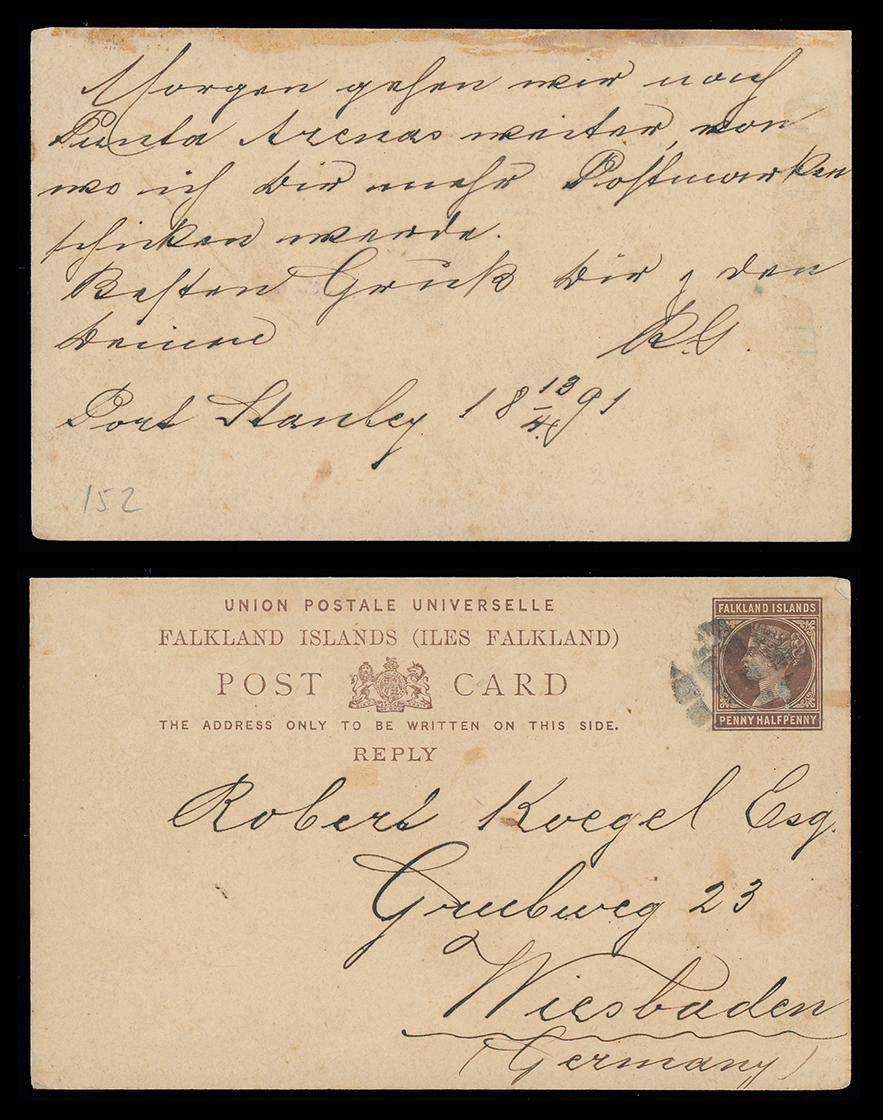 Morgen gehen wir nach
Punta Arenas weiter, von
wo ich Dir mehr Postmarken
schicken werde.
Besten Gruß Dir & den
Deinen
R.G.
Port Stanley 18 13/4 91
152
UNION POSTALE UNIVERSELLE
FALKLAND ISLANDS (ILES FALKLAND)
POST CARD
THE ADDRESS ONLY TO BE WRITTEN ON THIS SIDE.
REPLY
FALKLAND ISLANDS
PENNY HALFPENNY
Robert Koegel Esq.
Grubweg 23
Wiesbaden
(Germany)